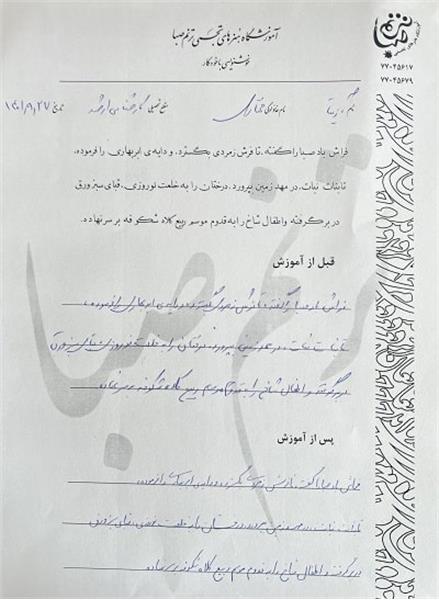 آموزشگاه هنرهای تجسمی ترنم صبا
خوشنویسی با خودکار
۷۷۰۴۵۶۱۷
۷۷۰۴۵۶۷۹
نام نام خانوادگی مختاری سطح تحصیلی کارشناسی ارشد تاریخ ۱۴۰۱/۹/۲۷
فراش باد صبا را گفته، تا فرش زمردی بگسترد، و دایه‌ی ابر بهاری را فرموده،
تا بنات نبات، در مهد زمین بپرورد. درختان را به خلعت نوروزی، قبای سبز ورق
در بر گرفته و اطفال شاخ را به قدوم موسم ربیع کلاه شکوفه بر سر نهاده.
قبل از آموزش
فراش باد صبا را گفته تا فرش زمردی بگسترد و دایه ابر بهاری را فرموده
تا بنات نبات در مهد زمین بپرورد درختان را به خلعت نوروزی قبای سبز ورق
در بر گرفته و اطفال شاخ را به قدوم موسم ربیع کلاه شکوفه بر سر نهاده
پس از آموزش
فراش باد صبا را گفته تا فرش زمردی بگسترد و دایه ابر بهاری را فرموده
تا بنات نبات در مهد زمین بپرورد درختان را به خلعت نوروزی قبای سبز ورق
در بر گرفته و اطفال شاخ را به قدوم موسم ربیع کلاه شکوفه بر سر نهاده
ترنم صبا